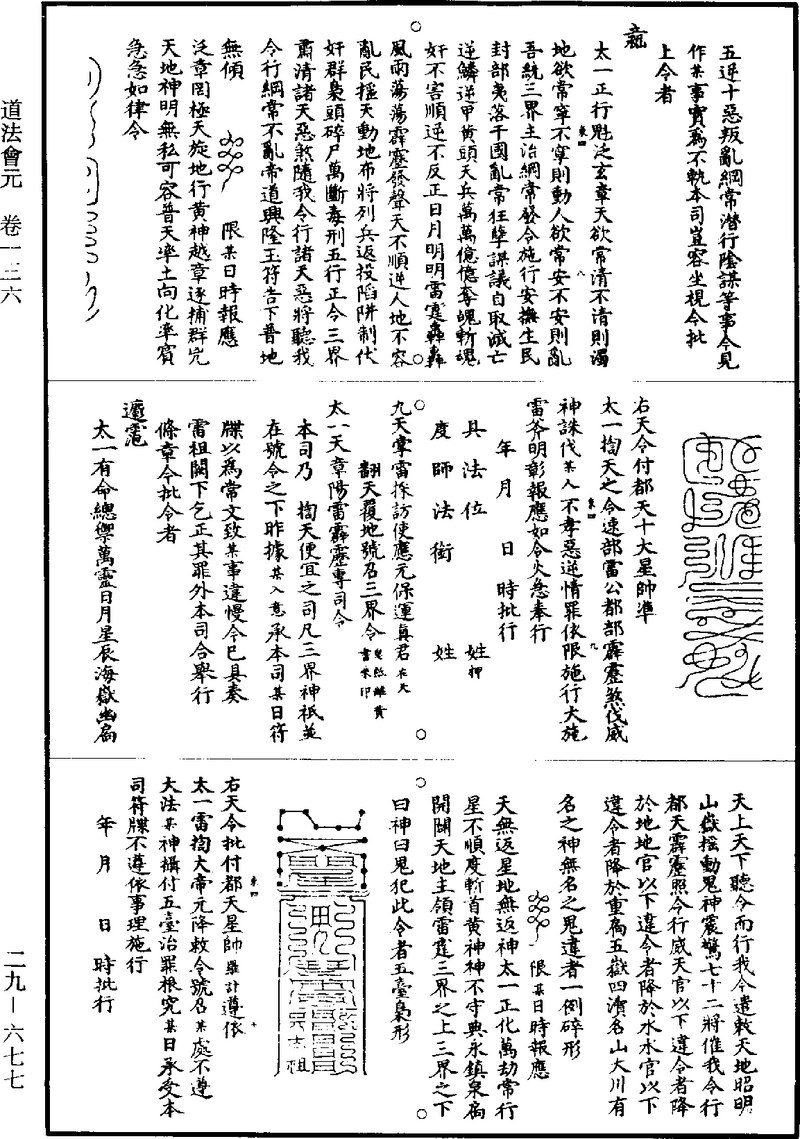 道法會元　卷一三六
二九—六七七
五逆十惡叛亂綱常潛行陰謀等事今見
作某事實為不軌本司豈容坐視今批
上令者
太一正行魁泛玄章天欲常清不清則濁
地欲常寧不寧則動人欲常安不安則亂
吾統三界主治綱常發令施行安撫生民
封部夷落干國亂常狂孽謀議自取滅亡
逆鱗逆甲黃頭天兵萬萬億億奪魄斬魂
奸不害順逆不反正日月明明雷霆轟轟
風雨蕩蕩霹靂發聲天不順逆人地不容
亂民搖天動地布將列兵返投陷阱制伏
奸群梟頭碎尸萬斷毒刑五行正令三界
肅清諸天惡煞隨我令行諸天惡將聽我
令行綱常不亂帝道興隆玉符告下普地
無傾　　限某日時報應
泛章罔極天旋地行黃神越章逐捕群兇
天地神明無私可容普天率土向化率賓
急急如律令
右天令付都天十大星帥準
太一掏天之令速部雷公都部霹靂煞伐威
神誅伐某人不孝惡逆情罪依限施行大施
雷斧明彰報應如令火急奉行
年　月　　日　時批行
具　法　位　　　　　姓　押
度　師　法　銜　　　姓
九天掌雷採訪使應元保運真君在天
翻天覆地號召三界令
太一天章陽雷霹靂專司令
本司乃　掏天便宜之司凡三界神祇並
在號令之下昨據某入意承本司某日符
牒以為常文致某事違慢今已具奏
雷祖闕下乞正其罪外本司合舉行
條章令批令者
太一有命總禦萬靈日月星辰海嶽幽扃
天上天下聽令而行我令遣敕天地昭明
山嶽搖動鬼神震驚七十二將催我令行
都天霹靂照令行威天官以下違令者降
於地地官以下違令者降於水水官以下
違令者降於重扃五嶽四瀆名山大川有
名之神無名之鬼違者一例碎形
限某日時報應
天無返星地無返神太一正化萬劫常行
星不順度斬首黃神神不守典永鎮泉扃
開闢天地主領雷霆三界之上三界之下
曰神曰鬼犯此令者五臺梟形
右天令批付都天星帥　羅計遵依
太一雷掏大帝元降敕令號召某處不遵
大法某神攝付五臺治罪根究某日承受本
司符牒不遵依事理施行
年　月　　日　時批行